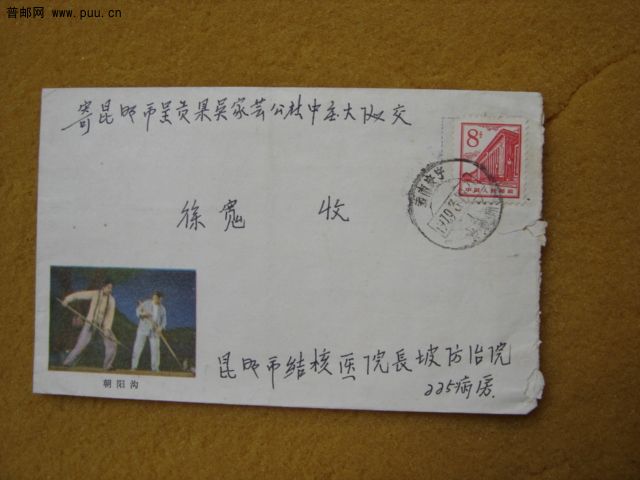 普邮网 www.puu.cn
寄昆明市呈贡果吴家芸公社中庄大队交
8分
中国人民邮政
徐寬 收
朝阳沟
昆明市结核医院長坡防治院
225病房.